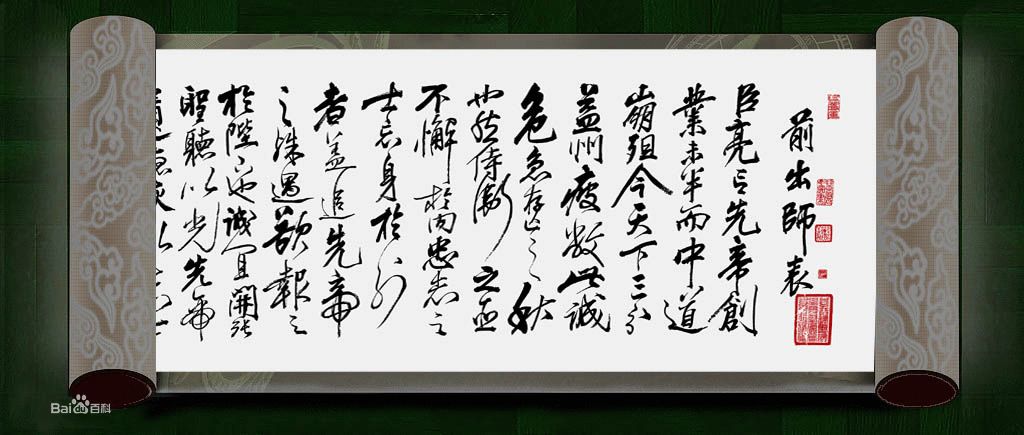 前出師表
臣亮言先帝創
業未半而中道
崩殂今天下三分
益州疲敝此誠
危急存亡之秋
也然侍衛之臣
不懈於内忠志之
士忘身於外
者蓋追先帝
之殊遇欲報之
於陛下誠宜開張
聖聽以光先帝
Bai百科